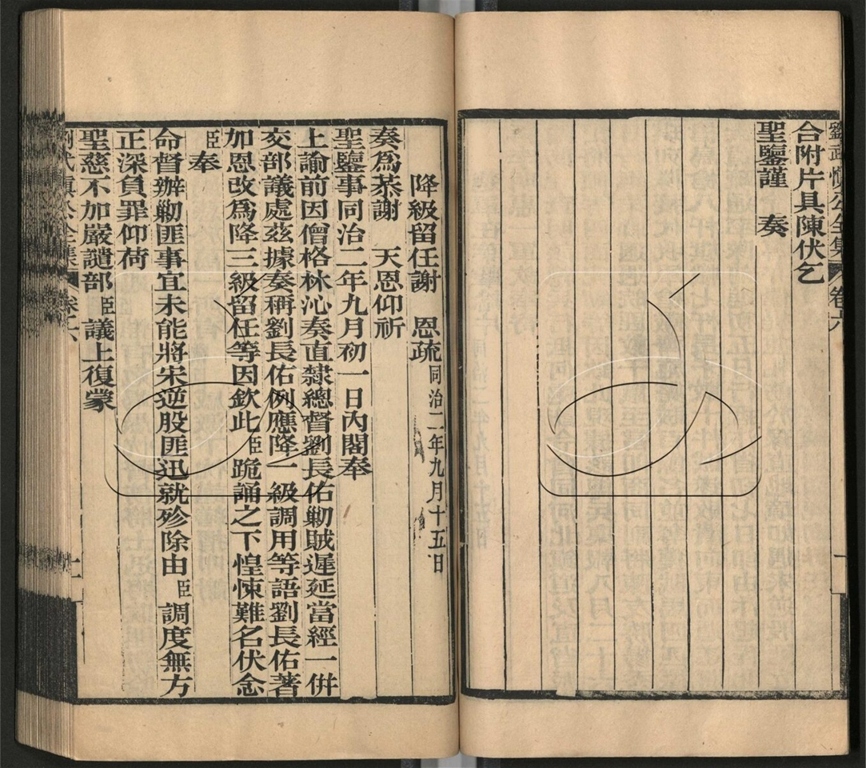 劉武慎公全集 卷六
合附片具陳伏乞
聖鑒謹 奏
降級留任謝 恩疏 同治二年九月十五日
奏爲恭謝 天恩仰祈
聖鑒事同治二年九月初一日內閣奉
上諭前因僧格林沁奏直隸總督劉長佑勦賊遲延當經一併
交部議處茲據奏稱劉長佑例應降一級調用等語劉長佑著
加恩改爲降三級留任等因欽此臣跪誦之下惶悚難名伏念
臣奉
命督辦勦匪事宜未能將宋逆股匪迅就殄除由臣調度無方
正深負罪仰荷
聖慈不加嚴譴部臣議上復蒙
劉武慎公全集 卷六